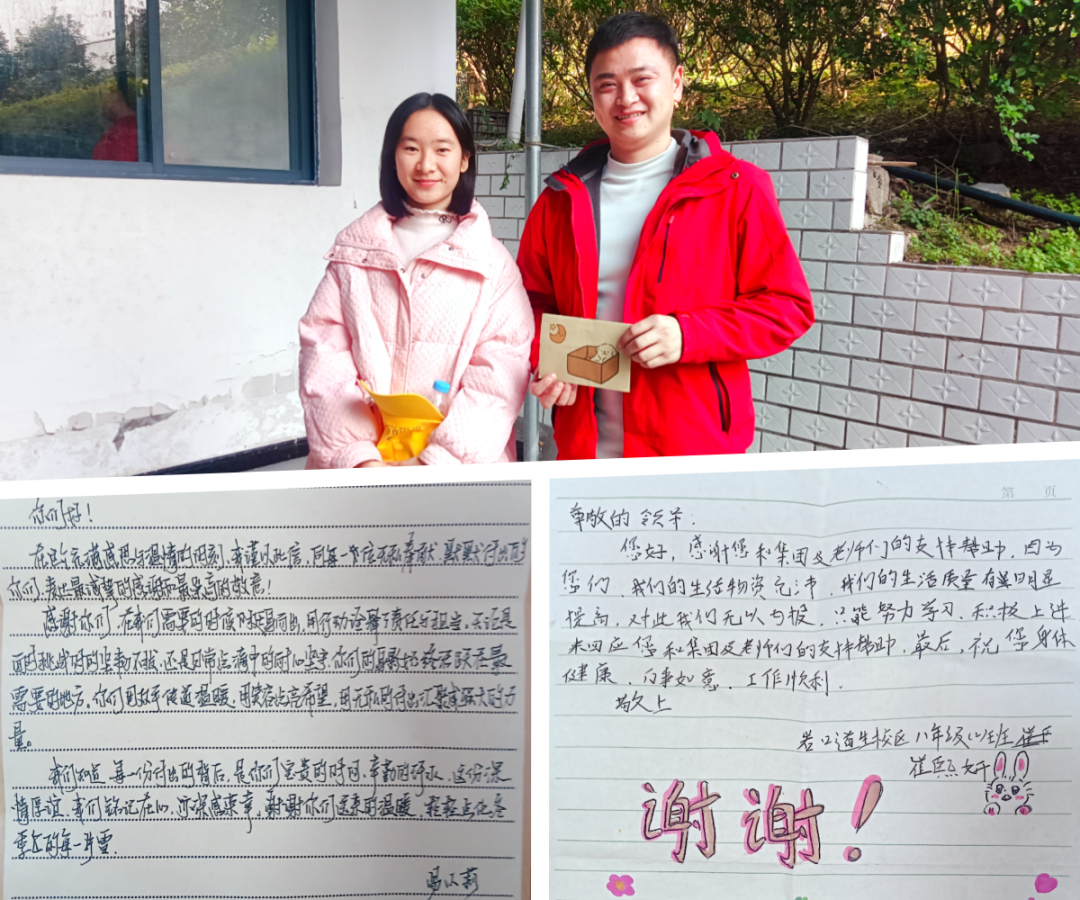 你们好！
在这个充满感恩与温情的时刻，我谨以此信，向每一位无私奉献、默默付出的
你们，表达最诚挚的感谢和最崇高的敬意！
感谢你们，在我们需要的时候挺身而出，用行动诠释了责任与担当。无论是
面对挑战时的坚韧不拔，还是日常点滴中的耐心坚守，你们的身影总是出现在最
需要的地方。你们用双手传递温暖，用笑容点亮希望，用无私的付出汇聚成强大的力
量。
我们知道，每一份付出的背后，是你们宝贵的时间，辛勤的汗水，这份深
情厚谊，我们铭记在心，
谢谢你们送来的温暖，轻轻点化冬
季里的每一片雪。
第 页
尊敬的领导：
您好，感谢您和集团及老师们的支持帮助，因为
您们，我们的生活物资充沛，我们的生活质量有明显
提高，对此我们无以为报，只能努力学习，积极上进
来回应您和集团及老师们的支持帮助，最后，祝您身体
健康，万事如意，工作顺利。
敬上
岩口逍生校区八年级(2)班
崔熙妍
谢谢！